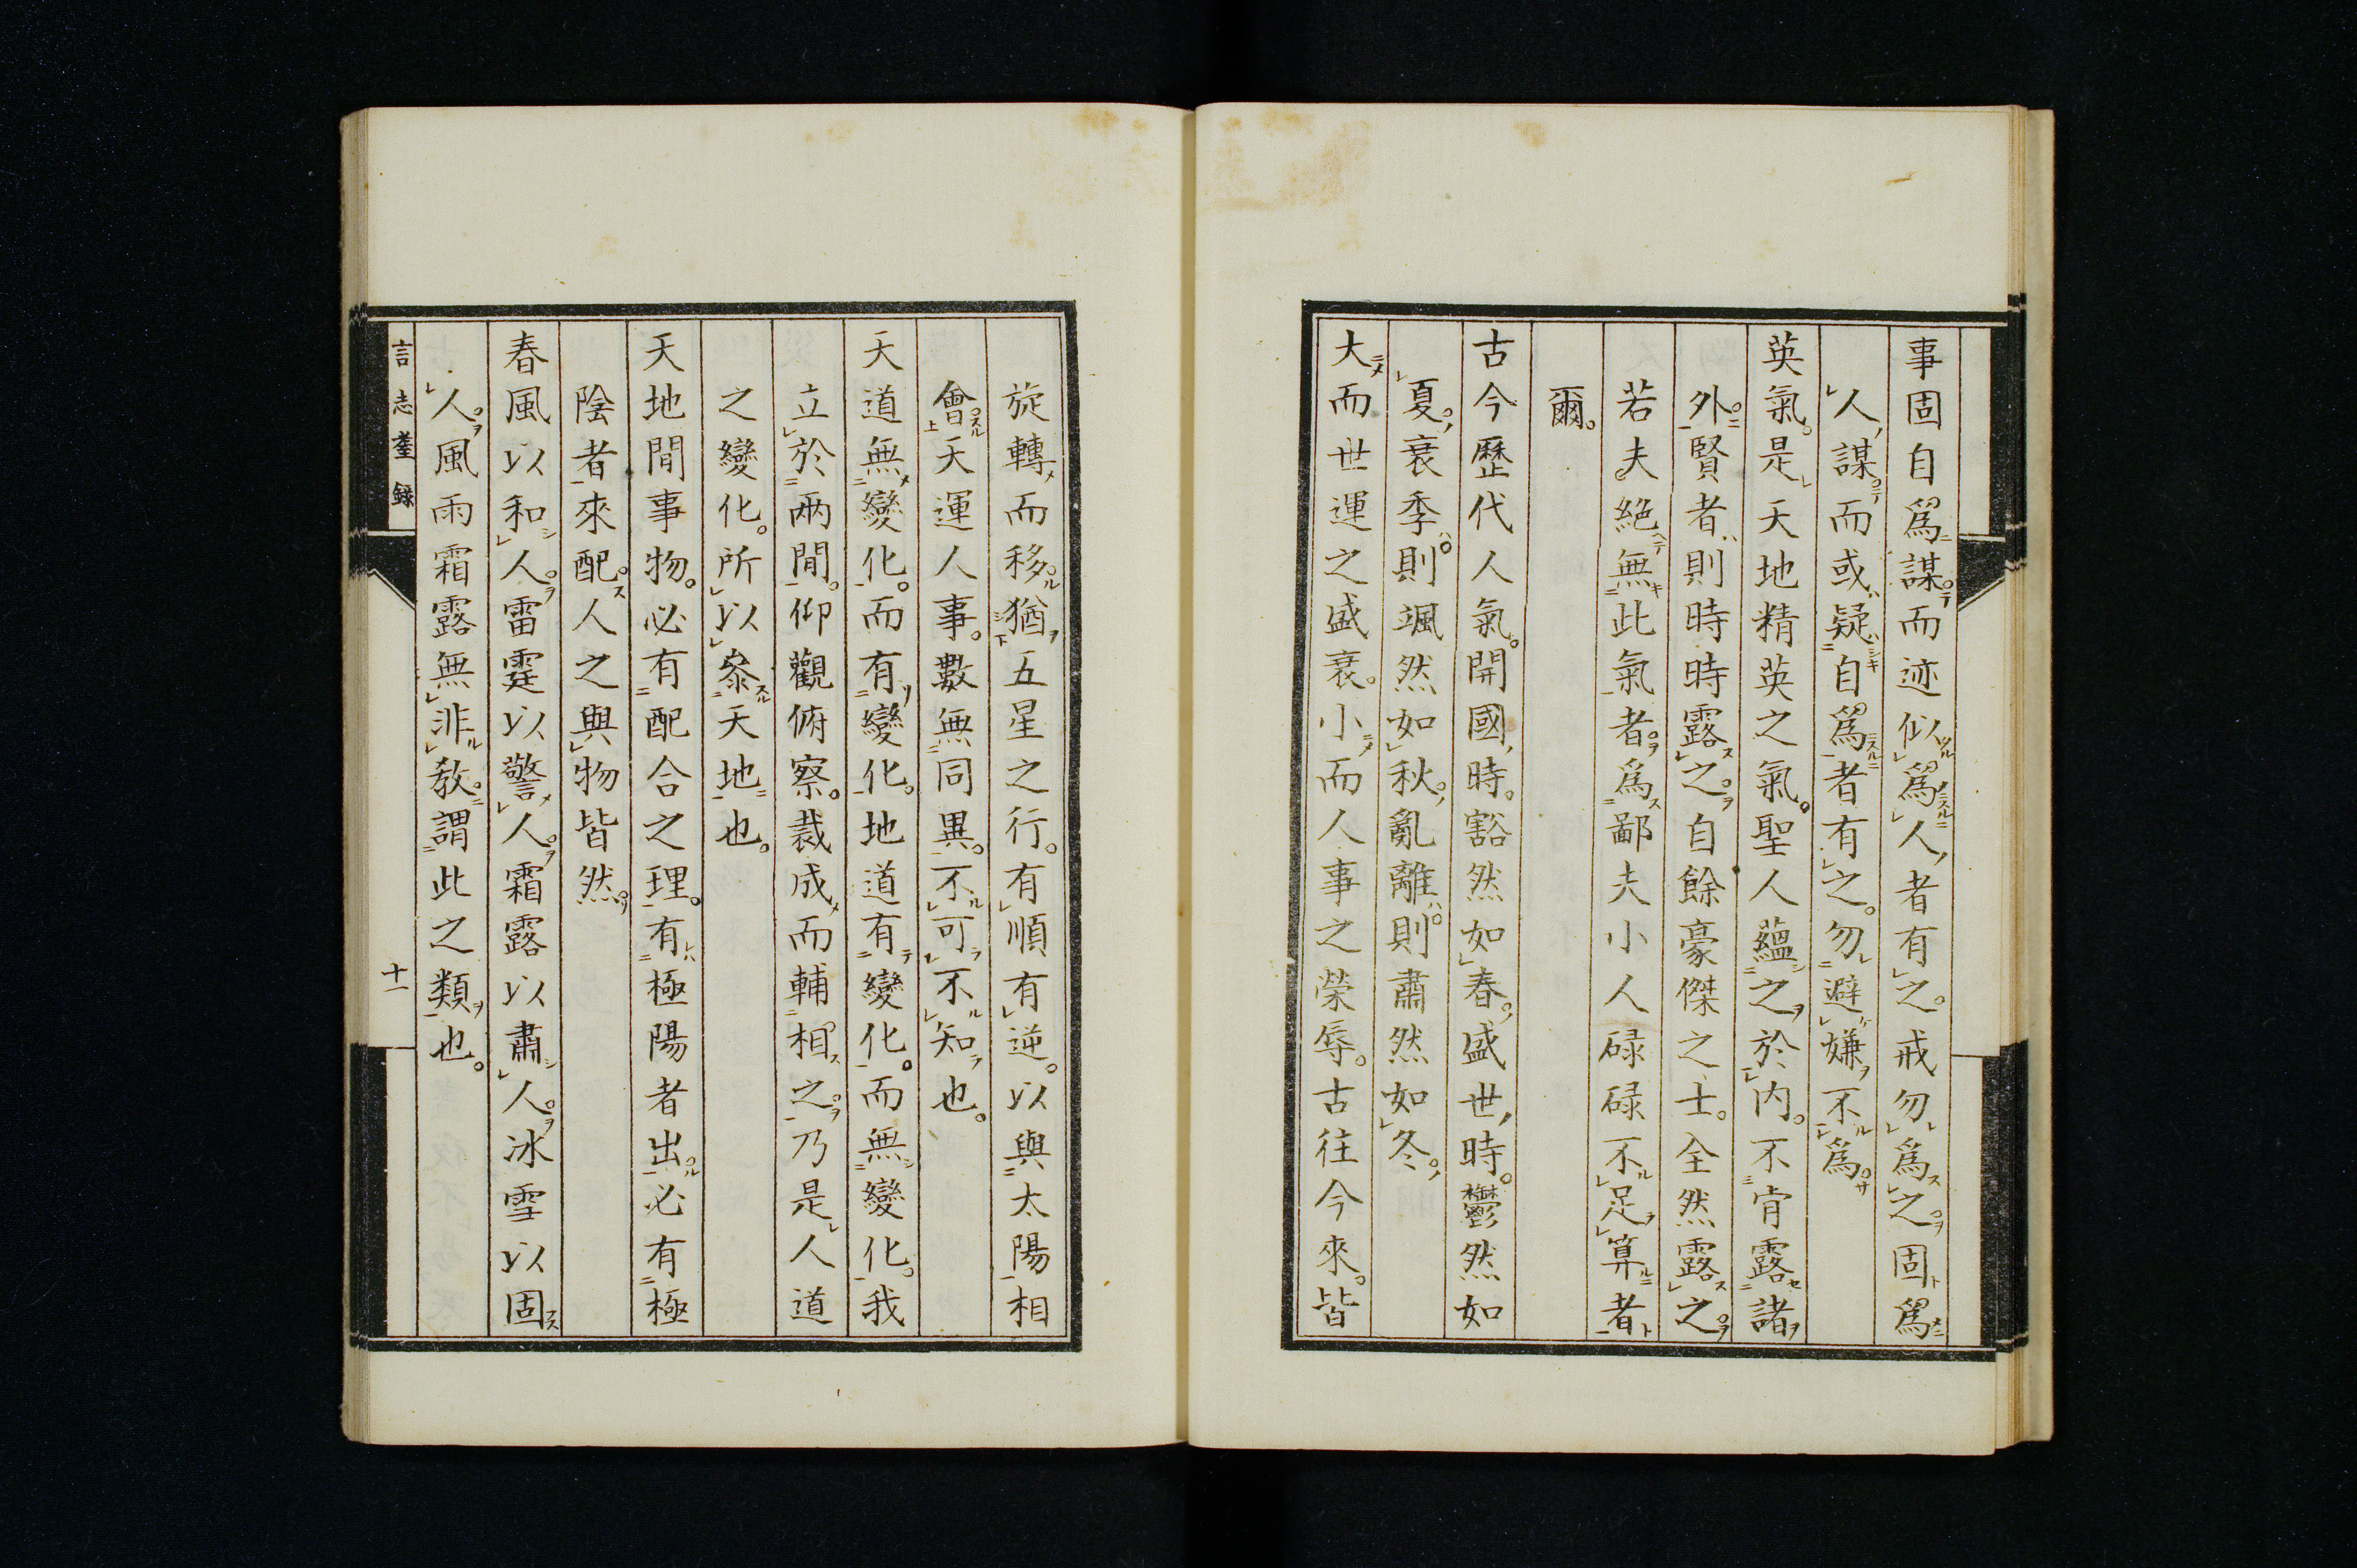 事固自爲謀而迹似爲人者有之。戒勿爲之固爲
人謀而或疑自爲者有之。勿避嫌不爲
英氣。是天地精英之氣。聖人蘊之於内。不肯露諸
外賢者則時時露之自餘豪傑之士。全然露之
若夫絶無此氣者爲鄙夫小人碌碌不足算者
爾。
古今歷代人氣。開國時。豁然如春盛世時。鬱然如
夏衰季則颯然如秋亂離則肅然如冬
大而世運之盛衰。小而人事之榮辱。古往今來。皆
旋轉而移猶五星之行。有順有逆。以與太陽相
會天運人事。數無同異。不可不知也。
天道無變化。而有變化。地道有變化。而無變化。我
立於兩間。仰觀俯察。裁成而輔相之乃是人道
之變化。所以參天地也。
天地間事物。必有配合之理。有極陽者出必有極
陰者來配人之與物皆然。
春風以和人雷霆以警人霜露以肅人冰雪以固
人風雨霜露無非教謂此之類也。
言志耋録
十一